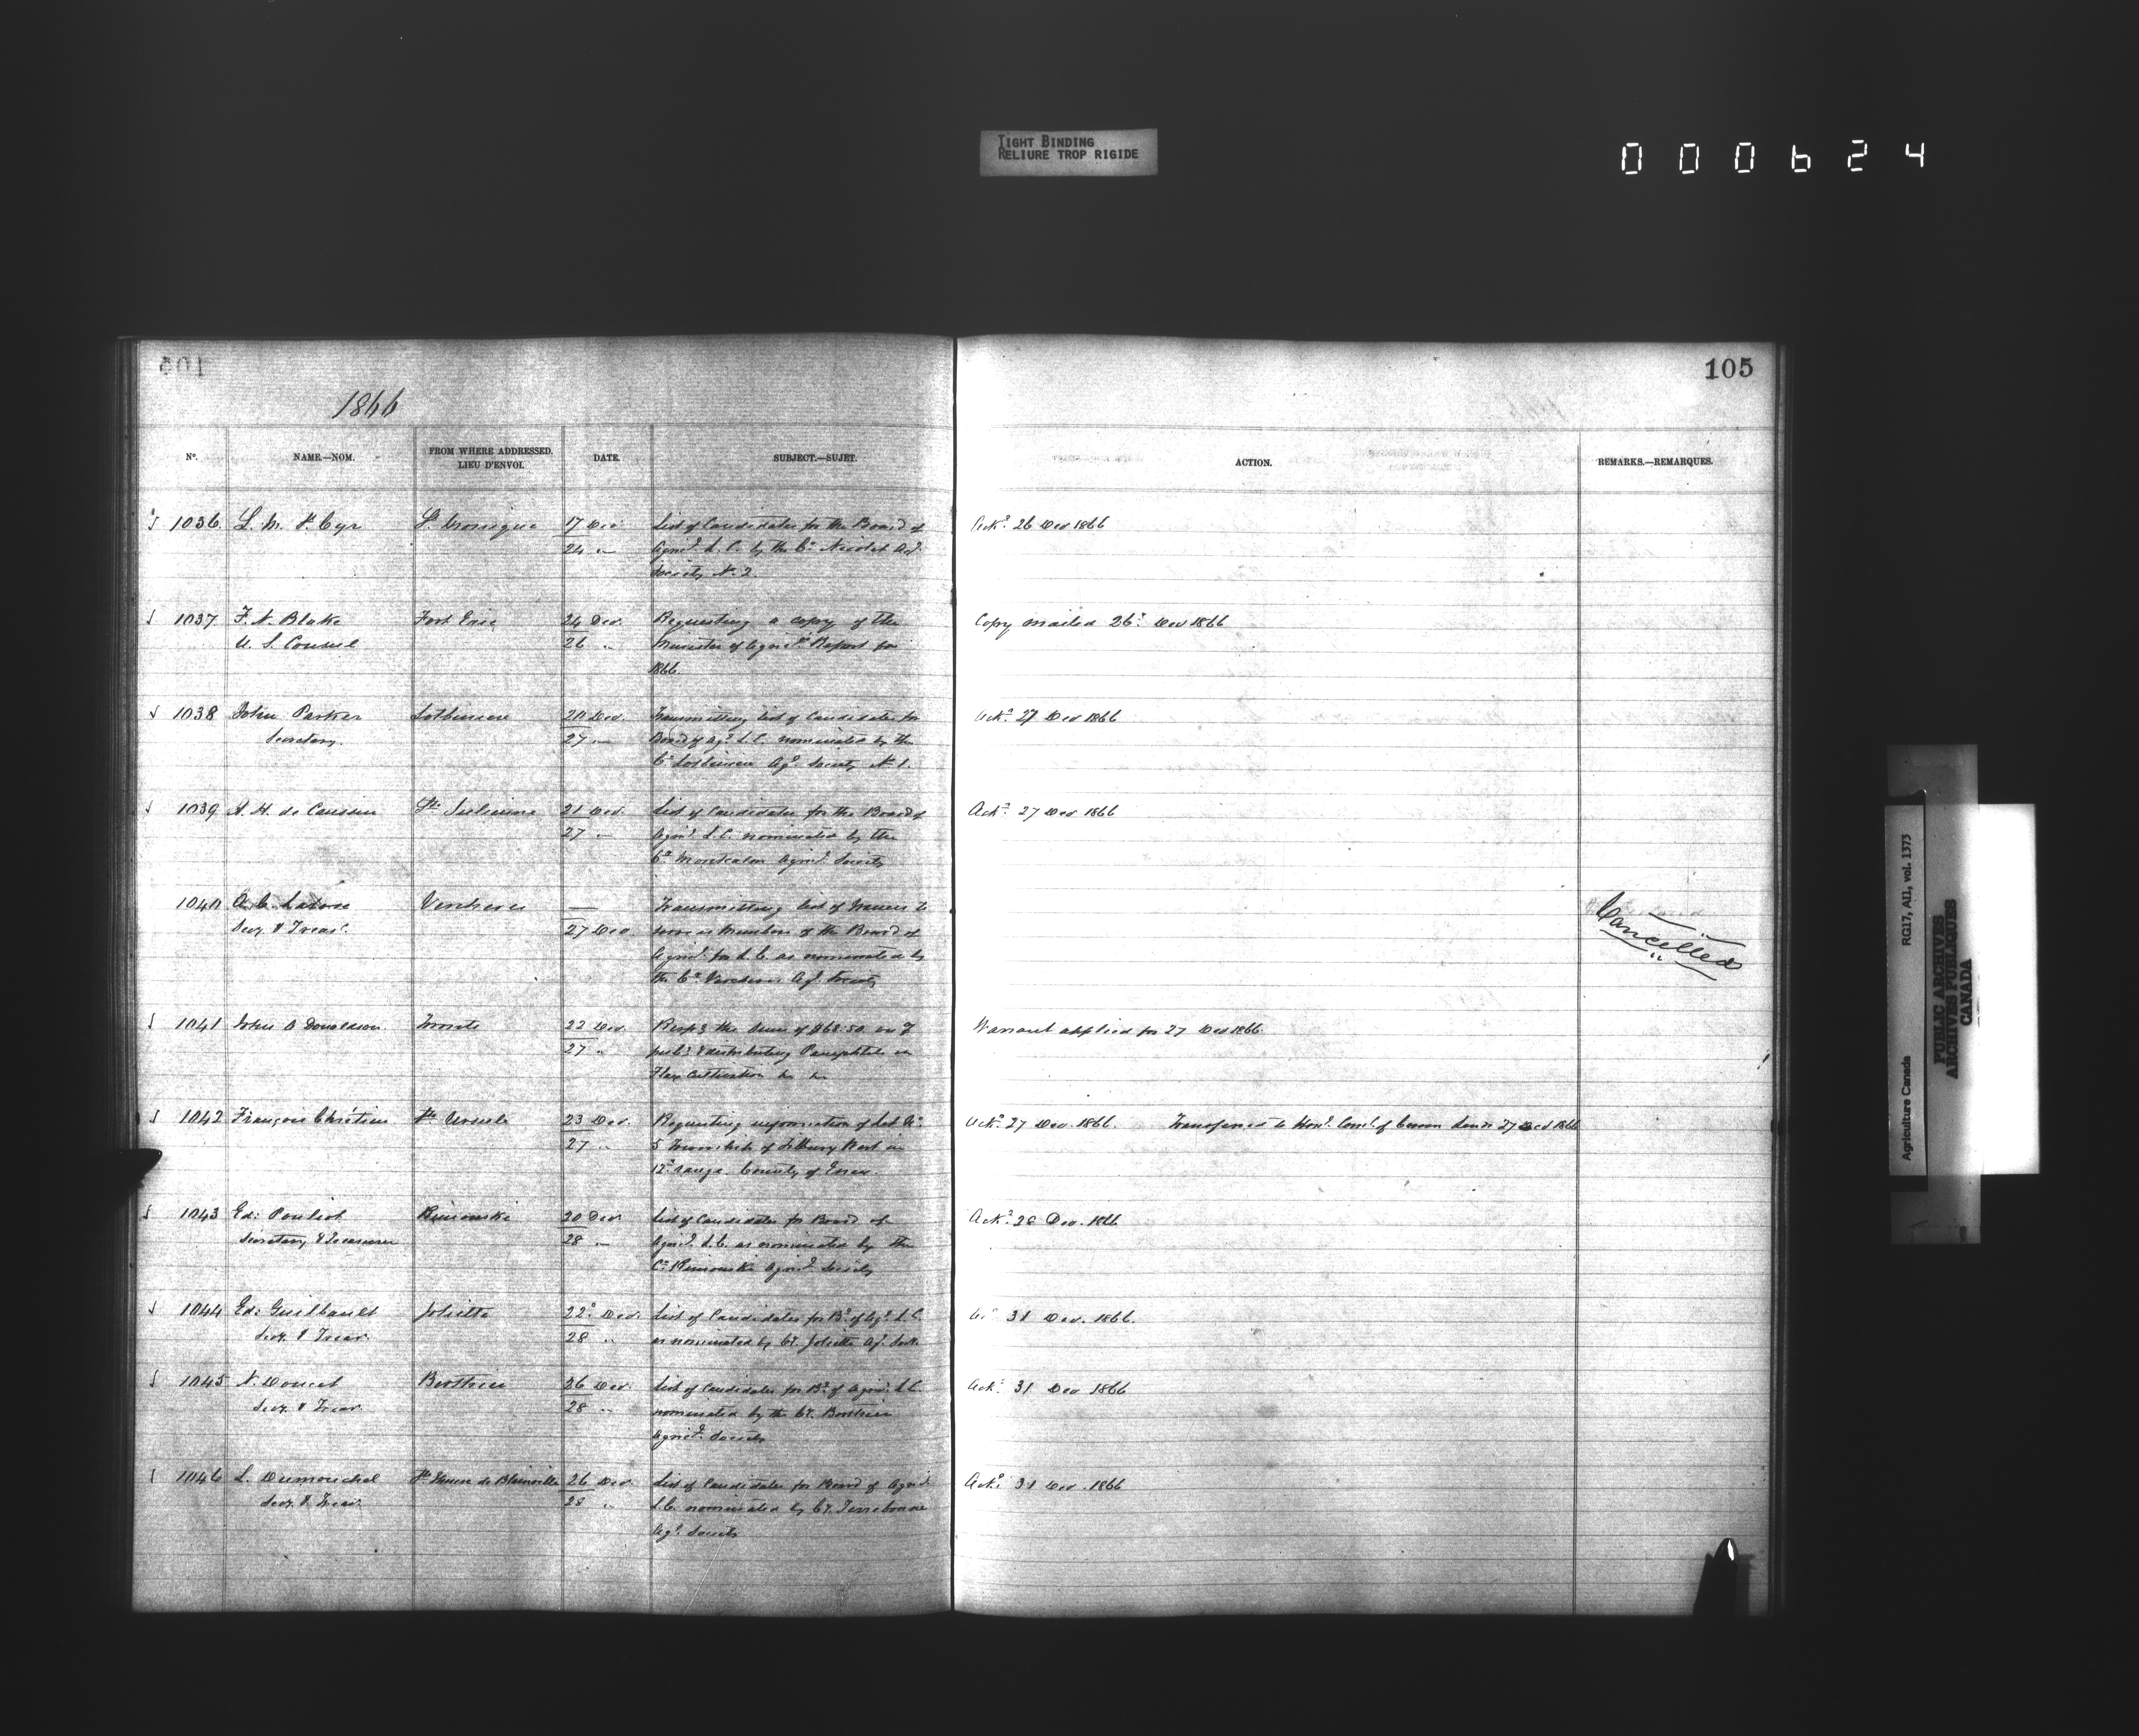 TIGHT BINDING
RELIURE TROP RIGIDE
000624
105
1866
No. NAME.—NOM. FROM WHERE ADDRESSED. LIEU D'ENVOI. DATE. SUBJECT.—SUJET. ACTION. REMARKS.—REMARQUES.
1036 L. M. St Cyr St Monique 17 Dec List of Candidates for the Board of Ackd 26 Dec 1866
24 " Agricl L. C. by the Co Nicolet Agl
Society No. 2.
1037 F. N. Blake Fort Erie 24 Dec. Requesting a copy of the Copy mailed 26th Dec 1866
U. S. Consul 26 " Minister of Agricl Report for
1866.
1038 John Parker Lotbiniere 20 Dec. Transmitting list of Candidates for Ackd 27 Dec 1866
Secretary. 27 " Board of Agl L. C. nominated by the
Co Lotbiniere Agl Society No 1.
1039 Ste Julienne 21 Dec. List of Candidates for the Board of Ackd 27 Dec 1866
27 " Agricl L. C. nominated by the
Co Montcalm Agricl Society
1040 Vercheres — Transmitting list of Names to Cancelled
Secy & Treasr. 27 Dec serve as Members of the Board of
Agricl for L. C. as nominated by
the Co Vercheres Agl Society
1041 John A Donaldson Toronto 22 Dec. the sum of $68.50 Warrant applied for 27 Dec 1866
27 " & distributing Pamphlets on
Flax Cultivation &c &c
1042 François Chrétien Ste Ursule 23 Dec. Requesting information of Lot No Ackd 27 Dec. 1866. Transferred to Honl. Coml. of Crown Lands 27 Dec 1866
27 " 5 Township of Tilbury West in
12th range County of Essex.
1043 Ed: Pouliot Rimouski 20 Dec List of Candidates for Board of Ackd 28 Dec. 1866
Secretary & Treasurer 28 " Agricl L. C. as nominated by the
Co Rimouski Agricl Society
1044 Ed: Guilbault Joliette 22d Dec. List of Candidates for Bd of Agl L. C. 31 Dec. 1866.
Secy & Treas. 28 " as nominated by Cy. Joliette Agl Socty
1045 N. Doucet Berthier 26 Dec. List of Candidates for Bd of Agricl L. C. Ackd 31 Dec 1866
Secy & Treas. 28 " nominated by the Cy. Berthier
Agricl Society
1046 L. Dumouchel Ste Therese de Blainville 26 Dec. List of Candidates for Board of Agricl Ackd 31 Dec. 1866
Secy & Treas. 28 " L. C. nominated by Cy. Terrebonne
Agl Society
Agriculture Canada RG17, AII, vol. 1373
PUBLIC ARCHIVES
ARCHIVES PUBLIQUES
CANADA